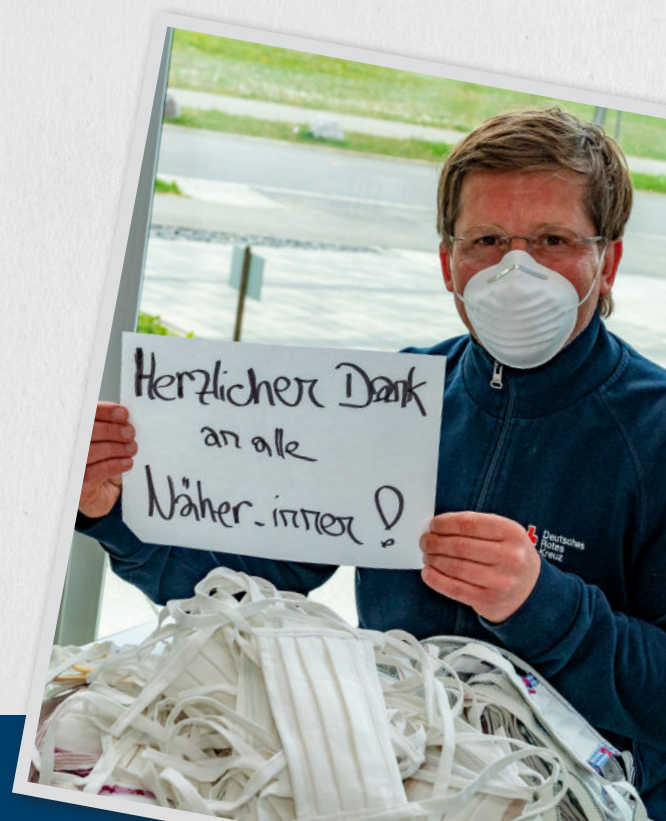 Herzlicher Dank
an alle
Näher_innen!
Deutsches
Rotes
Kreuz